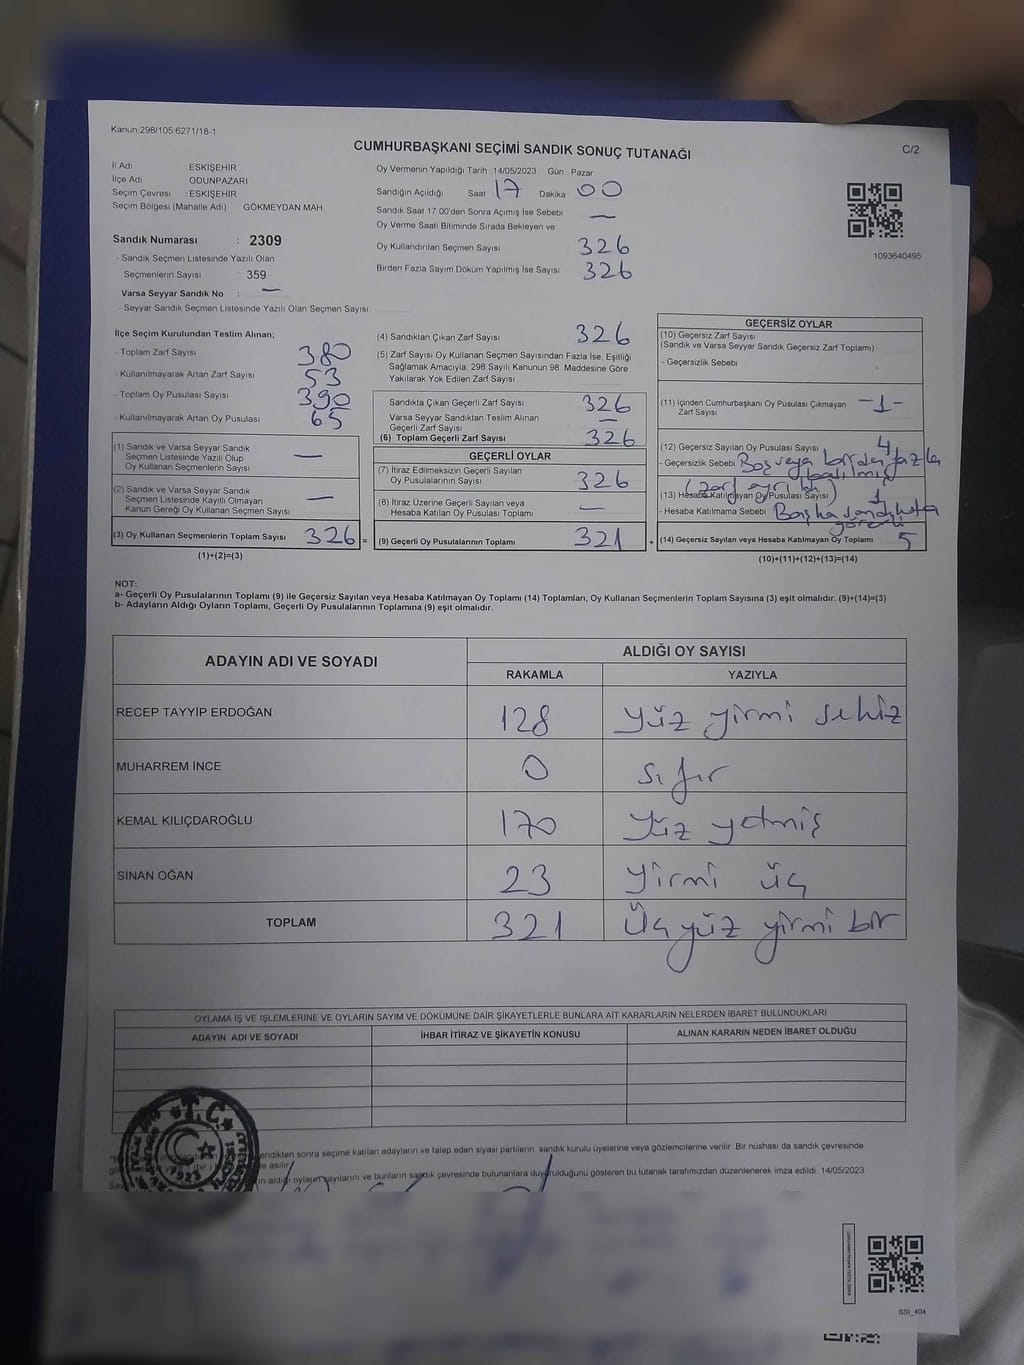 Kanun:298/105:6271/18-1
CUMHURBAŞKANI SEÇİMİ SANDIK SONUÇ TUTANAĞI
C/2
İl Adı ESKİŞEHİR
İlçe Adı ODUNPAZARI
Seçim Çevresi : ESKİŞEHİR
Seçim Bölgesi (Mahalle Adı) GÖKMEYDAN MAH.
Sandık Numarası : 2309
- Sandık Seçmen Listesinde Yazılı Olan
Seçmenlerin Sayısı : 359
Varsa Seyyar Sandık No : —
- Seyyar Sandık Seçmen Listesinde Yazılı Olan Seçmen Sayısı:
Oy Vermenin Yapıldığı Tarih 14/05/2023 Gün Pazar
Sandığın Açıldığı Saat 17 Dakika 00
Sandık Saat 17:00'den Sonra Açımış İse Sebebi —
Oy Verme Saati Bitiminde Sırada Bekleyen ve
Oy Kullandırılan Seçmen Sayısı 326
Birden Fazla Sayım Döküm Yapılmış İse Sayısı 326
1093640495
İlçe Seçim Kurulundan Teslim Alınan;
- Toplam Zarf Sayısı 380
- Kullanılmayarak Artan Zarf Sayısı 53
- Toplam Oy Pusulası Sayısı 390
- Kullanılmayarak Artan Oy Pusulası 65
(1) Sandık ve Varsa Seyyar Sandık
Seçmen Listesinde Yazılı Olup
Oy Kullanan Seçmenlerin Sayısı —
(2) Sandık ve Varsa Seyyar Sandık
Seçmen Listesinde Kayıtlı Olmayan
Kanun Gereği Oy Kullanan Seçmen Sayısı —
(3) Oy Kullanan Seçmenlerin Toplam Sayısı 326 =
(1)+(2)=(3)
(4) Sandıktan Çıkan Zarf Sayısı 326
(5) Zarf Sayısı Oy Kullanan Seçmen Sayısından Fazla İse, Eşitliği
Sağlamak Amacıyla, 298 Sayılı Kanunun 98. Maddesine Göre
Yakılarak Yok Edilen Zarf Sayısı
Sandıkta Çıkan Geçerli Zarf Sayısı 326
Varsa Seyyar Sandıktan Teslim Alınan
Geçerli Zarf Sayısı —
(6) Toplam Geçerli Zarf Sayısı 326
GEÇERLİ OYLAR
(7) İtiraz Edilmeksizin Geçerli Sayılan
Oy Pusulalarının Sayısı 326
(8) İtiraz Üzerine Geçerli Sayılan veya
Hesaba Katılan Oy Pusulası Toplamı —
(9) Geçerli Oy Pusulalarının Toplamı 321 +
GEÇERSİZ OYLAR
(10) Geçersiz Zarf Sayısı
(Sandık ve Varsa Seyyar Sandık Geçersiz Zarf Toplamı)
- Geçersizlik Sebebi
(11) İçinden Cumhurbaşkanı Oy Pusulası Çıkmayan
Zarf Sayısı -1-
(12) Geçersiz Sayılan Oy Pusulası Sayısı 4
- Geçersizlik Sebebi Boş veya birden fazla
(13) Hesaba Katılmayan Oy Pusulası Sayısı 1
- Hesaba Katılmama Sebebi Başka sandıkta
(14) Geçersiz Sayılan veya Hesaba Katılmayan Oy Toplamı 5
(10)+(11)+(12)+(13)=(14)
NOT:
a- Geçerli Oy Pusulalarının Toplamı (9) ile Geçersiz Sayılan veya Hesaba Katılmayan Oy Toplamı (14) Toplamları, Oy Kullanan Seçmenlerin Toplam Sayısına (3) eşit olmalıdır. (9)+(14)=(3)
b- Adayların Aldığı Oyların Toplamı, Geçerli Oy Pusulalarının Toplamına (9) eşit olmalıdır.
ADAYIN ADI VE SOYADI ALDIĞI OY SAYISI
RAKAMLA YAZIYLA
RECEP TAYYİP ERDOĞAN 128 Yüz yirmi sekiz
MUHARREM İNCE 0 Sıfır
KEMAL KILIÇDAROĞLU 170 Yüz yetmiş
SİNAN OĞAN 23 Yirmi üç
TOPLAM 321 Üçyüz yirmi bir
OYLAMA İŞ VE İŞLEMLERİNE VE OYLARIN SAYIM VE DÖKÜMÜNE DAİR ŞİKAYETLERLE BUNLARA AİT KARARLARIN NELERDEN İBARET BULUNDUKLARI
ADAYIN ADI VE SOYADI İHBAR İTİRAZ VE ŞİKAYETİN KONUSU ALINAN KARARIN NEDEN İBARET OLDUĞU
T.C.
sonra seçime katılan adayların ve talep eden siyasi partilerin sandık kurulu üyelerine veya gözlemcilerine verilir. Bir nüshası da sandık çevresinde
asılır.
aldığı oyların sayılarını ve bunların sandık çevresinde bulunanlara duyurulduğunu gösteren bu tutanak tarafımızdan düzenlenerek imza edildi. 14/05/2023
SSİ_404